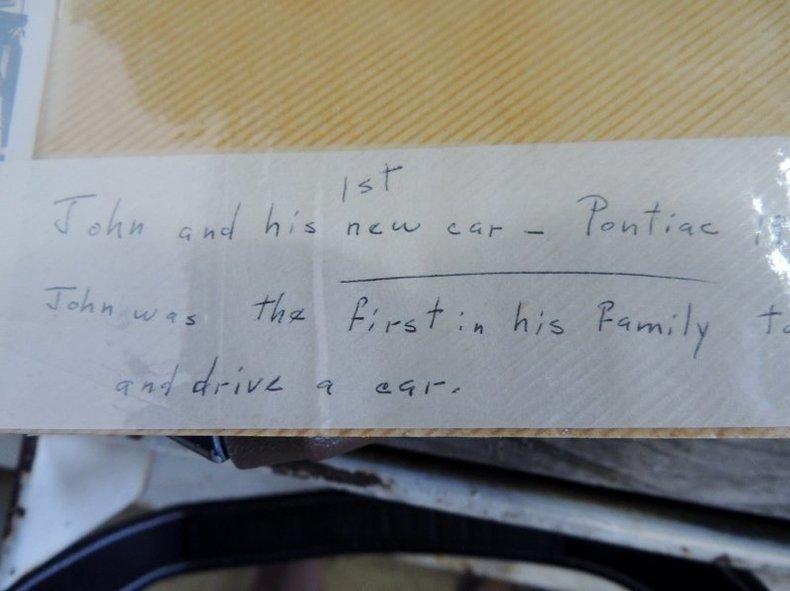 1st
John and his new car - Pontiac
John was the first in his Family
and drive a car.